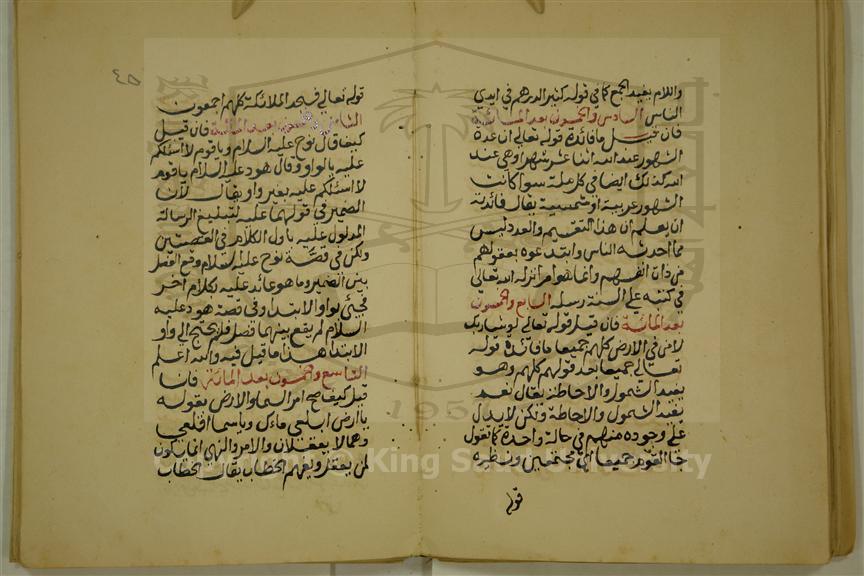 واللام يفيد الجمع كما في قوله كثير الدرهم في ايدي
الناس السادس والخمسون بعد المائة
فان قيل ما فائدة قوله تعالى ان عدة
الشهور عند الله اثنا عشر شهرا وهي عند
الله كذلك ايضا في كل ملة سوا كانت
الشهور عربية او شمسية يقال فائدته
ان يعلم ان هذا التقسيم والعدد ليس
مما احدثه الناس وابتدعوه بعقولهم
من ذات انفسهم وانما هو امر انزله الله تعالى
في كتبه على السنة رسله السابع والخمسون
بعد المائة فان قيل قوله تعالى لو شا ربك
لامن في الارض كلهم جميعا ما فائدة قوله
تعالى جميعا بعد قولهم كلهم وهو
يفيد الشمول والاحاطة يقال نعم
يفيد الشمول والاحاطة ولكن لا يدل
على وجوده منهم في حالة واحدة كما تقول
جا القوم جميعا اي مجتمعين ونظيره
قوله
٤٥
قوله تعالى فسجد الملائكة كلهم اجمعون
الثامن والخمسون بعد المائة فان قيل
كيف قال نوح عليه السلام ويا قوم لا اسئلكم
عليه بالواو وقال هود عليه السلام يا قوم
لا اسئلكم عليه بغير واو يقال لان
الضمير في قولهما عليه لتبليغ الرسالة
المدلول عليه باول الكلام في القصتين
ولكن في قصة نوح عليه السلام وقع الفصل
بين الضمير وما هو عائد عليه بكلام اخر
فجئ بواو الابتدا وفي قصة هود عليه
السلام لم يقع بينهما فصل فلم يحتج الى واو
الابتدا هذا ما قيل فيه والله اعلم
التاسع والخمسون بعد المائة فان
قيل كيف صح امر السما والارض بقوله
يا ارض ابلعي ماءك ويا سما اقلعي
وهما لا يعقلان والامر والنهي انما يكون
لمن يعقل ويفهم الخطاب يقال الخطاب
Copyright © King Saud University
195